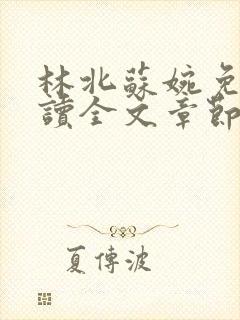 林北蘇婉免
讀全文章節
夏傳波